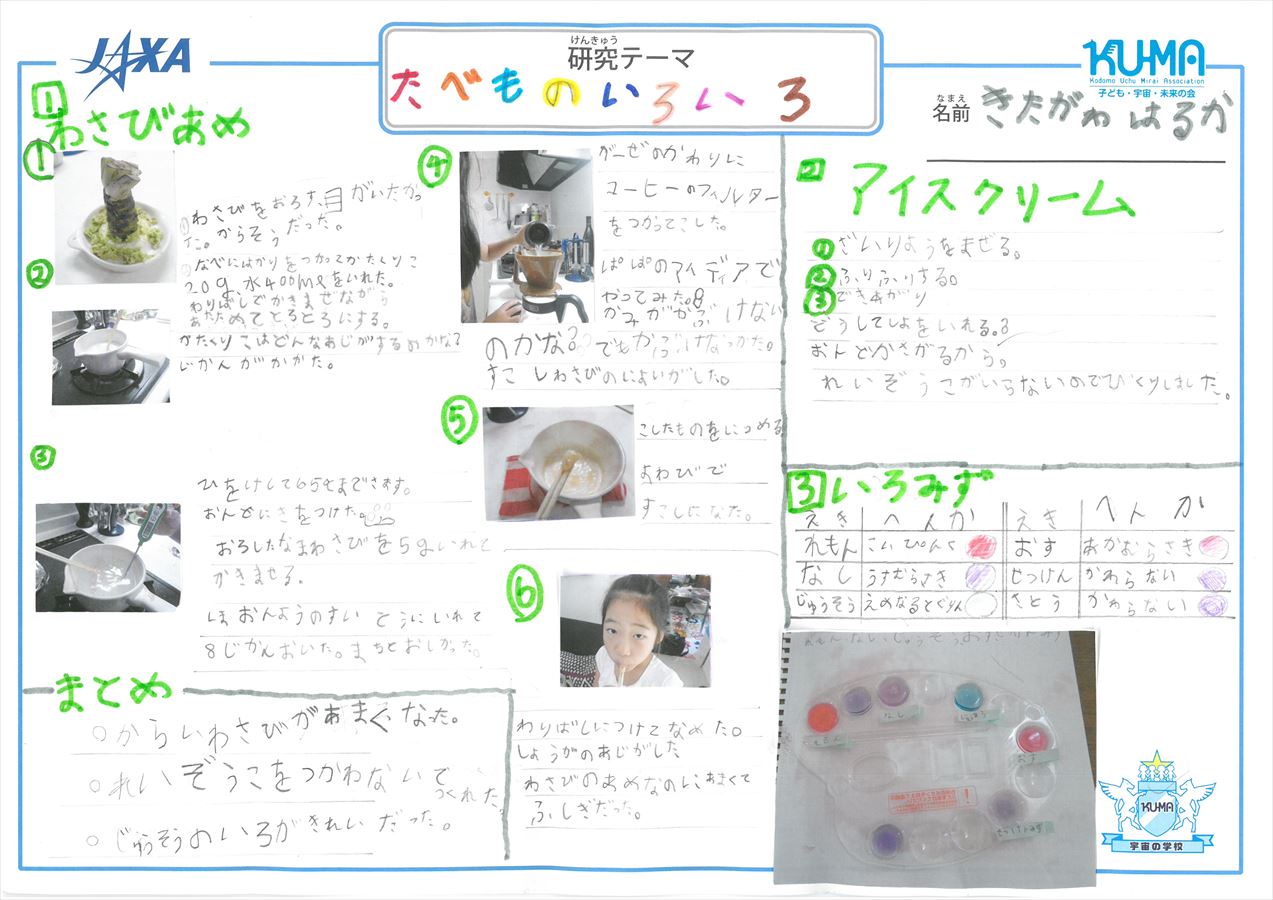 JAXA
けんきゅう
研究テーマ
たべものいろいろ
KU-MA
Kodomo Uchu Mirai Association
子ども・宇宙・未来の会
なまえ
名前 きたがわ はるか
1
わさびあめ
①
わさびをおろす、目がいたかっ
た。からそうだった。
②
なべにはかりをつかってかたくりこ
20g、水400mlをいれた。
わりばしでかきまぜながら
あたためてとろとろにする。
かたくりこはどんなあじがするのかな?
じかんがかかた。
③
ひをけして65℃までさます。
おんどにきをつけた。
おろしたなまわさびを5gいれて
かきまぜる。
ほおんようのすいとうにいれて
8じかんおいた。まちどおしかった。
④
がーぜのかわりに
コーヒーのフィルター
をつかってこした。
ぱぱのアイディアで
やってみた。
かみがかぶけない
のかな?でもかぶけなかった。
すこしわさびのによいがした。
⑤
こしたものをにつめる
よわびで
すこしになた。
⑥
わりばしにつけてなめた。
しょうがのあじがした
わさびのあめなのにあまくて
ふしぎだった。
まとめ
○からいわさびがあまくなった。
○れいぞうこをつかわないで
つくれた。
○じゅうそうのいろがきれいだった。
2
アイスクリーム
① ざいりようをまぜる。
② ふりふりする。
③ できあがり
どうしてしよをいれる。?
おんどがさがるから。
れいぞうこがいらないのでびくりしました。
3 いろみず
えき へんか えき へんか
れもん こいぴんく おす あかむらさき
なし うすむらさき せっけん かわらない
じゅうそう えめらるどぐりん さとう かわらない
れもん
なし
じゅうそう
おす
せっけんみず
KU-MA
宇宙の学校